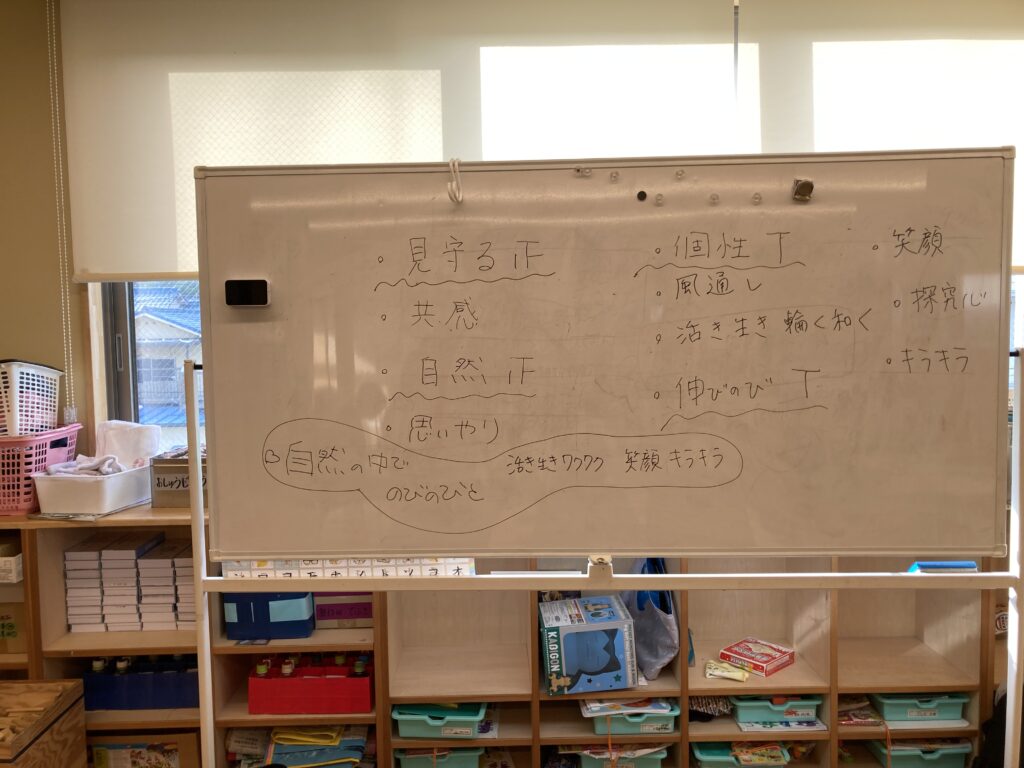 ・見守る 正
・共感
・自然 正
・思いやり
・個性 丅
・風通し
・活き生き 輪く和く
・伸びのび 丅
・笑顔
・探究心
・キラキラ
自然の中で
のびのびと
活き生きワクワク 笑顔 キラキラ
KADIGON